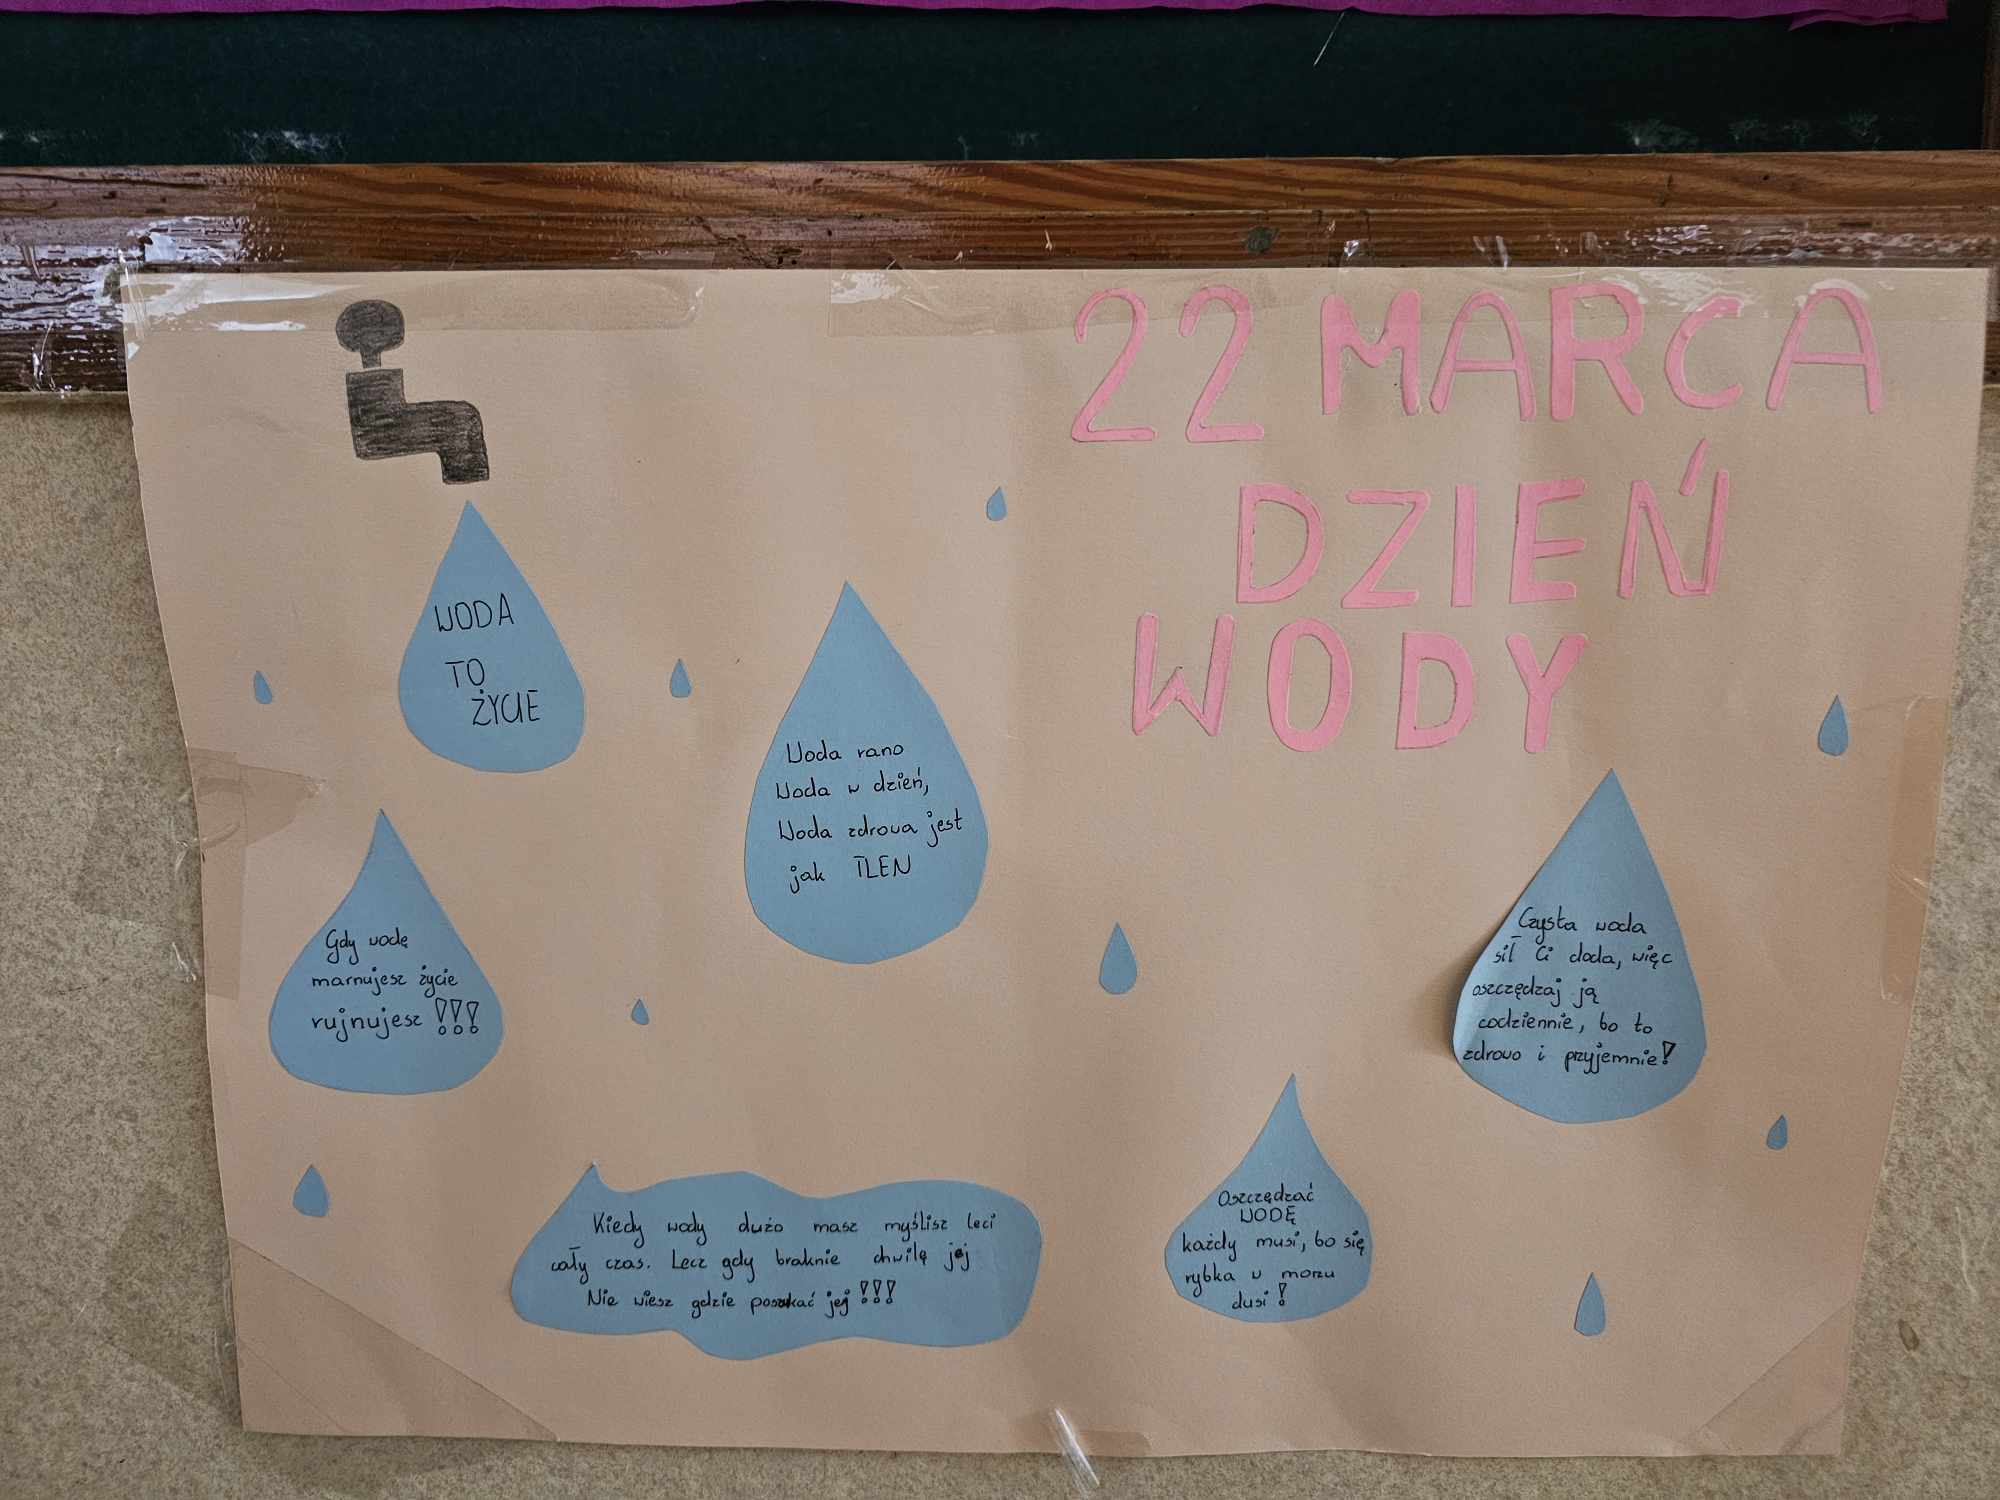 22 MARCA
DZIEŃ
WODY
WODA
TO
ŻYCIE
Woda rano
Woda w dzień,
Woda zdrowa jest
jak TLEN
Gdy wodę
marnujesz życie
rujnujesz !!!
Czysta woda
sił Ci doda, więc
oszczędzaj ją
codziennie, bo to
zdrowo i przyjemnie!
Kiedy wody dużo masz myślisz leci
cały czas. Lecz gdy braknie chwilę jej
Nie wiesz gdzie poszukać jej !!!
Oszczędzać
WODĘ
każdy musi, bo się
rybka w morzu
dusi!